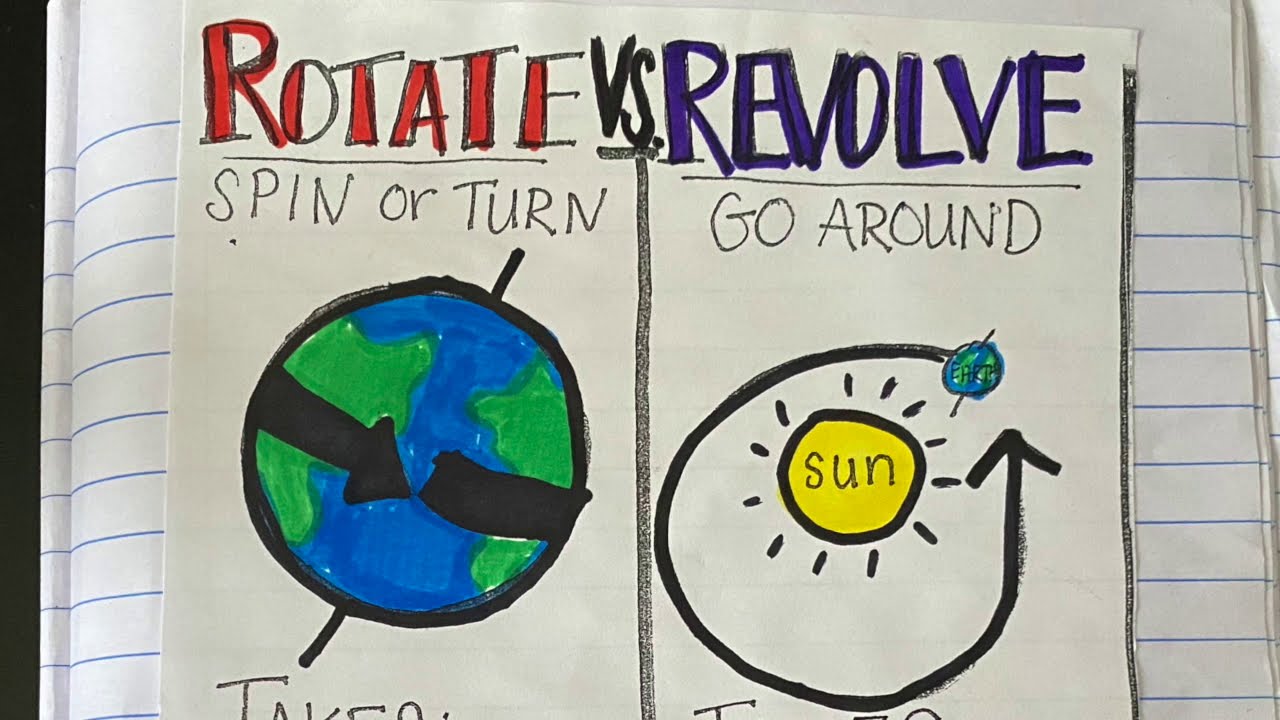 ROTATE VS. REVOLVE
SPIN or TURN
GO AROUND
EARTH
sun